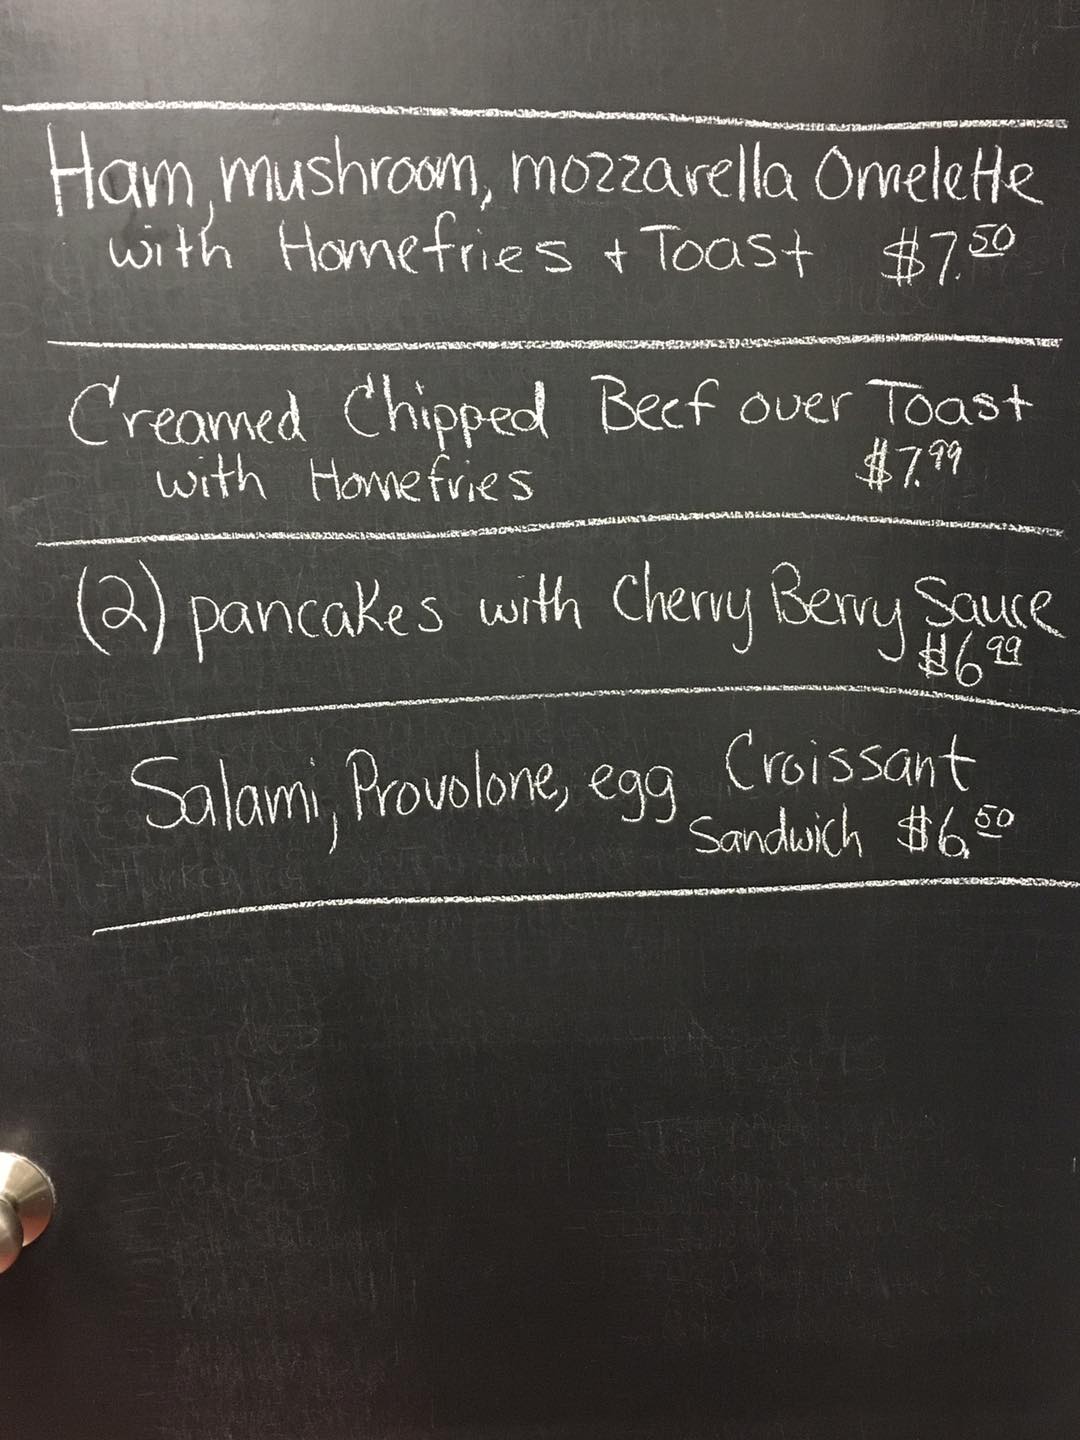 Ham, mushroom, mozzarella Omelette
with Homefries + Toast $7.50
Creamed Chipped Beef over Toast
with Homefries $7.99
(2) pancakes with Cherry Berry Sauce
$6.99
Salami, Provolone, egg Croissant
Sandwich $6.50